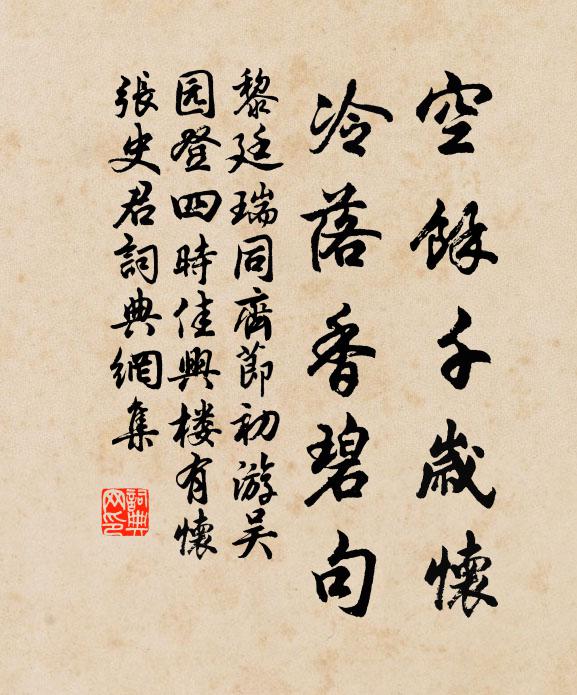 空餘千歲懷
冷落香碧句
黎廷瑞同齊節初游吴
园登四時佳興楼有懷
張史君詞典網集
詞典网印